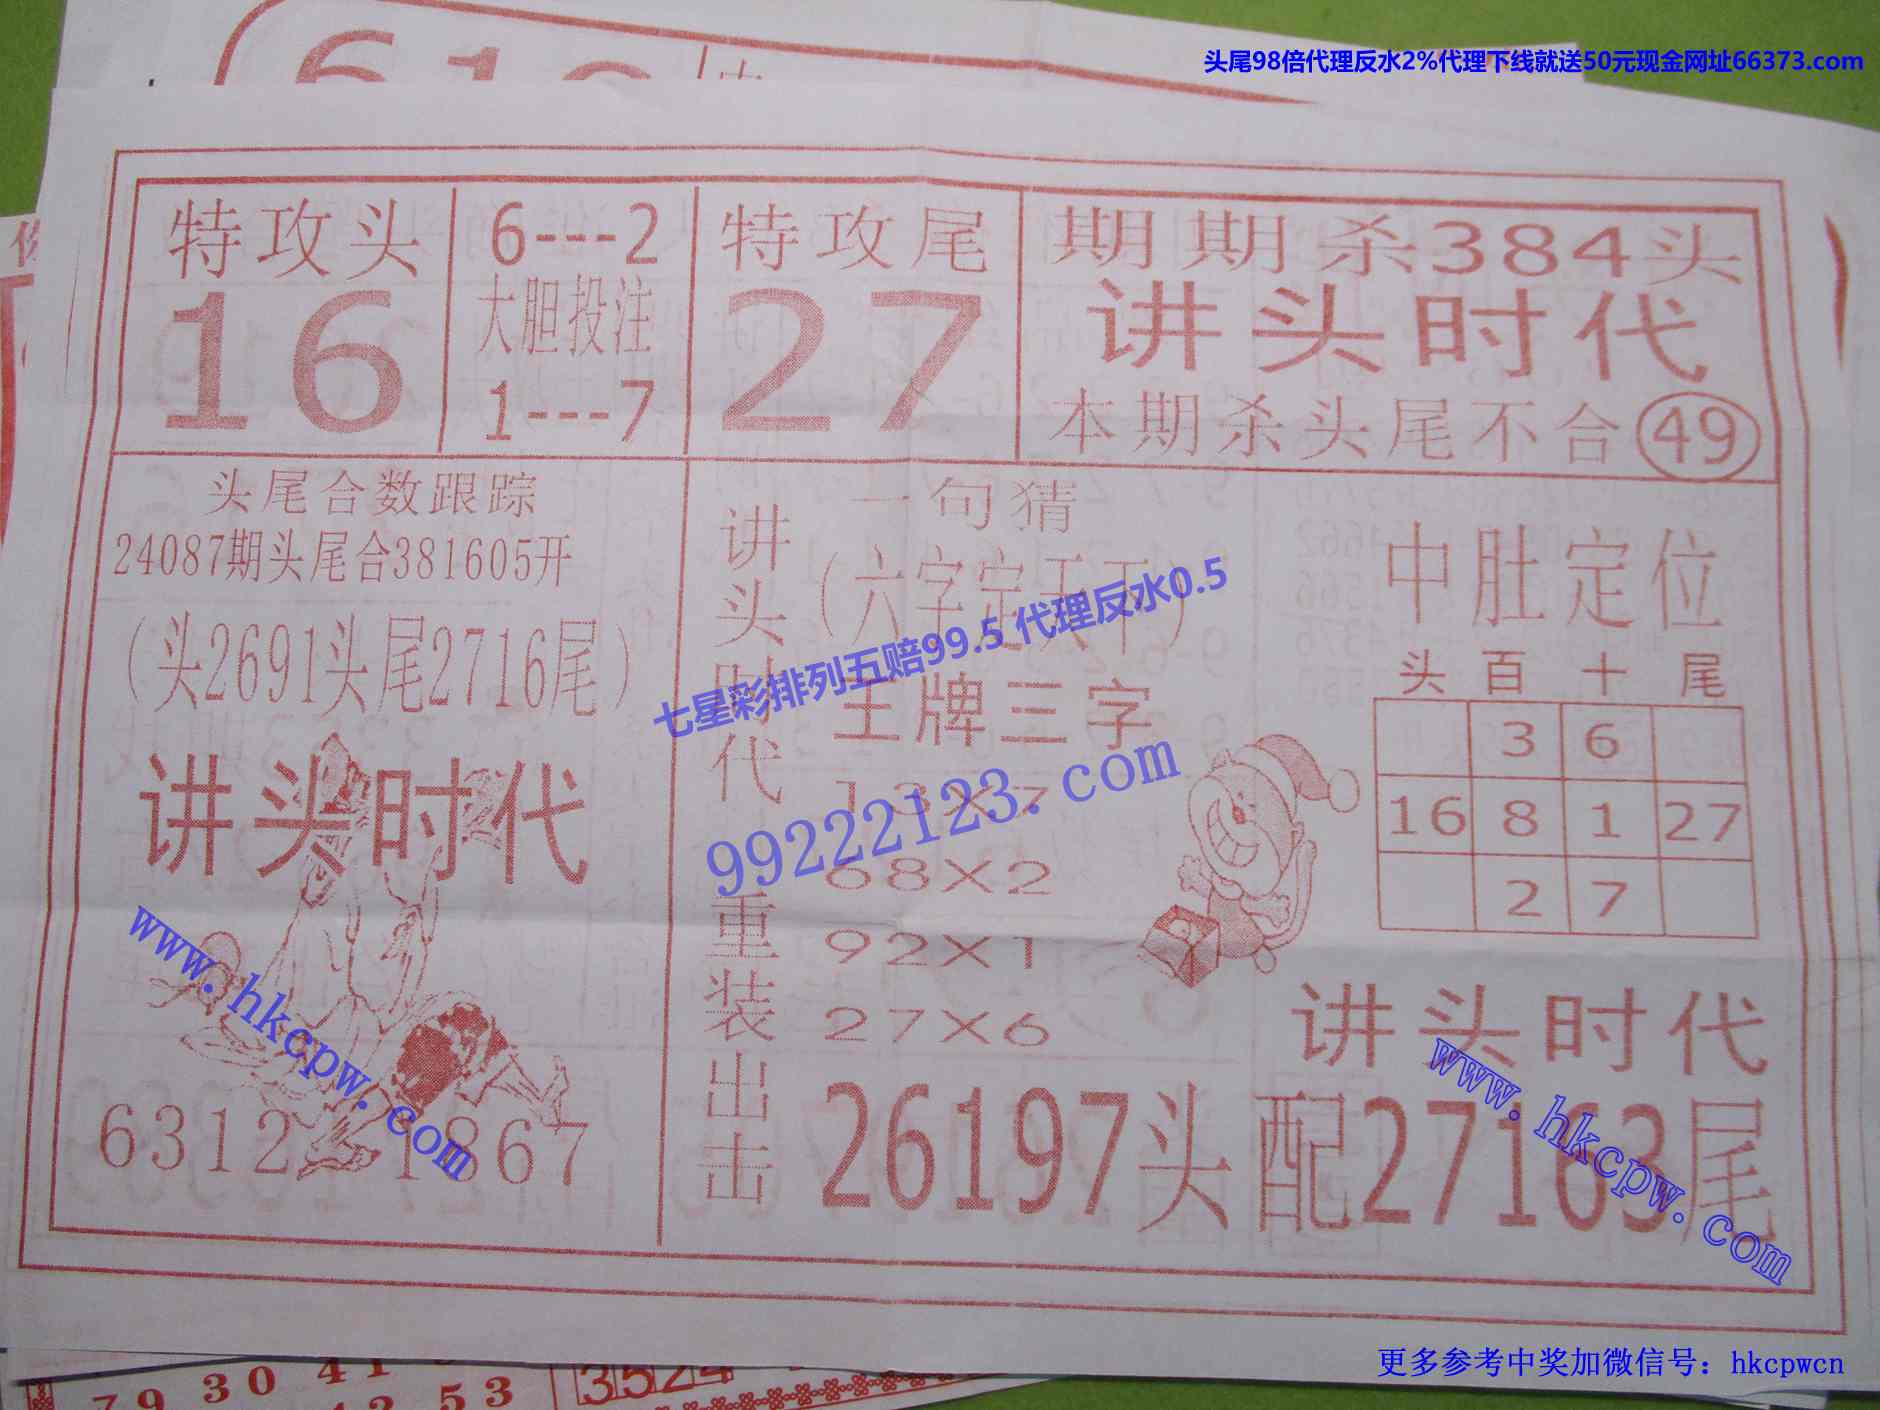 头尾98倍代理反水2%代理下线就送50元现金网址66373.com
特攻头
16
6---2
大胆投注
1---7
特攻尾
27
期期杀384头
讲头时代
本期杀头尾不合49
头尾合数跟踪
24087期头尾合381605开
（头2691头尾2716尾）
讲头时代
6312 1867
讲头时代重装出击
一句猜
（六字定天下）
王牌三字
13X7
68X2
92X1
27X6
26197头配27163尾
中肚定位
头 百 十 尾
3 6
16 8 1 27
2 7
讲头时代
七星彩排列五赔99.5 代理反水0.5
99222123.com
www.hkcpw.com
www.hkcpw.com
79 30 41
53
3524
更多参考中奖加微信号：hkcpwcn